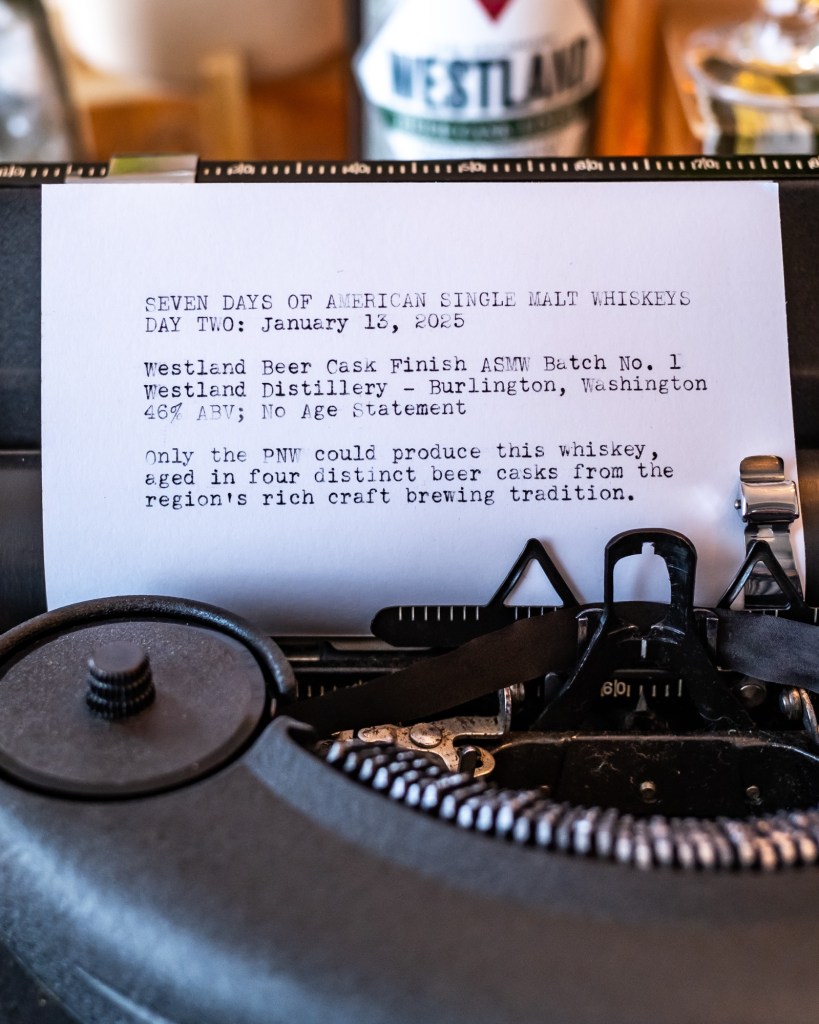 WESTLAND
SEVEN DAYS OF AMERICAN SINGLE MALT WHISKEYS
DAY TWO: January 13, 2025
Westland Beer Cask Finish ASMW Batch No. 1
Westland Distillery - Burlington, Washington
46% ABV; No Age Statement
Only the PNW could produce this whiskey,
aged in four distinct beer casks from the
region's rich craft brewing tradition.